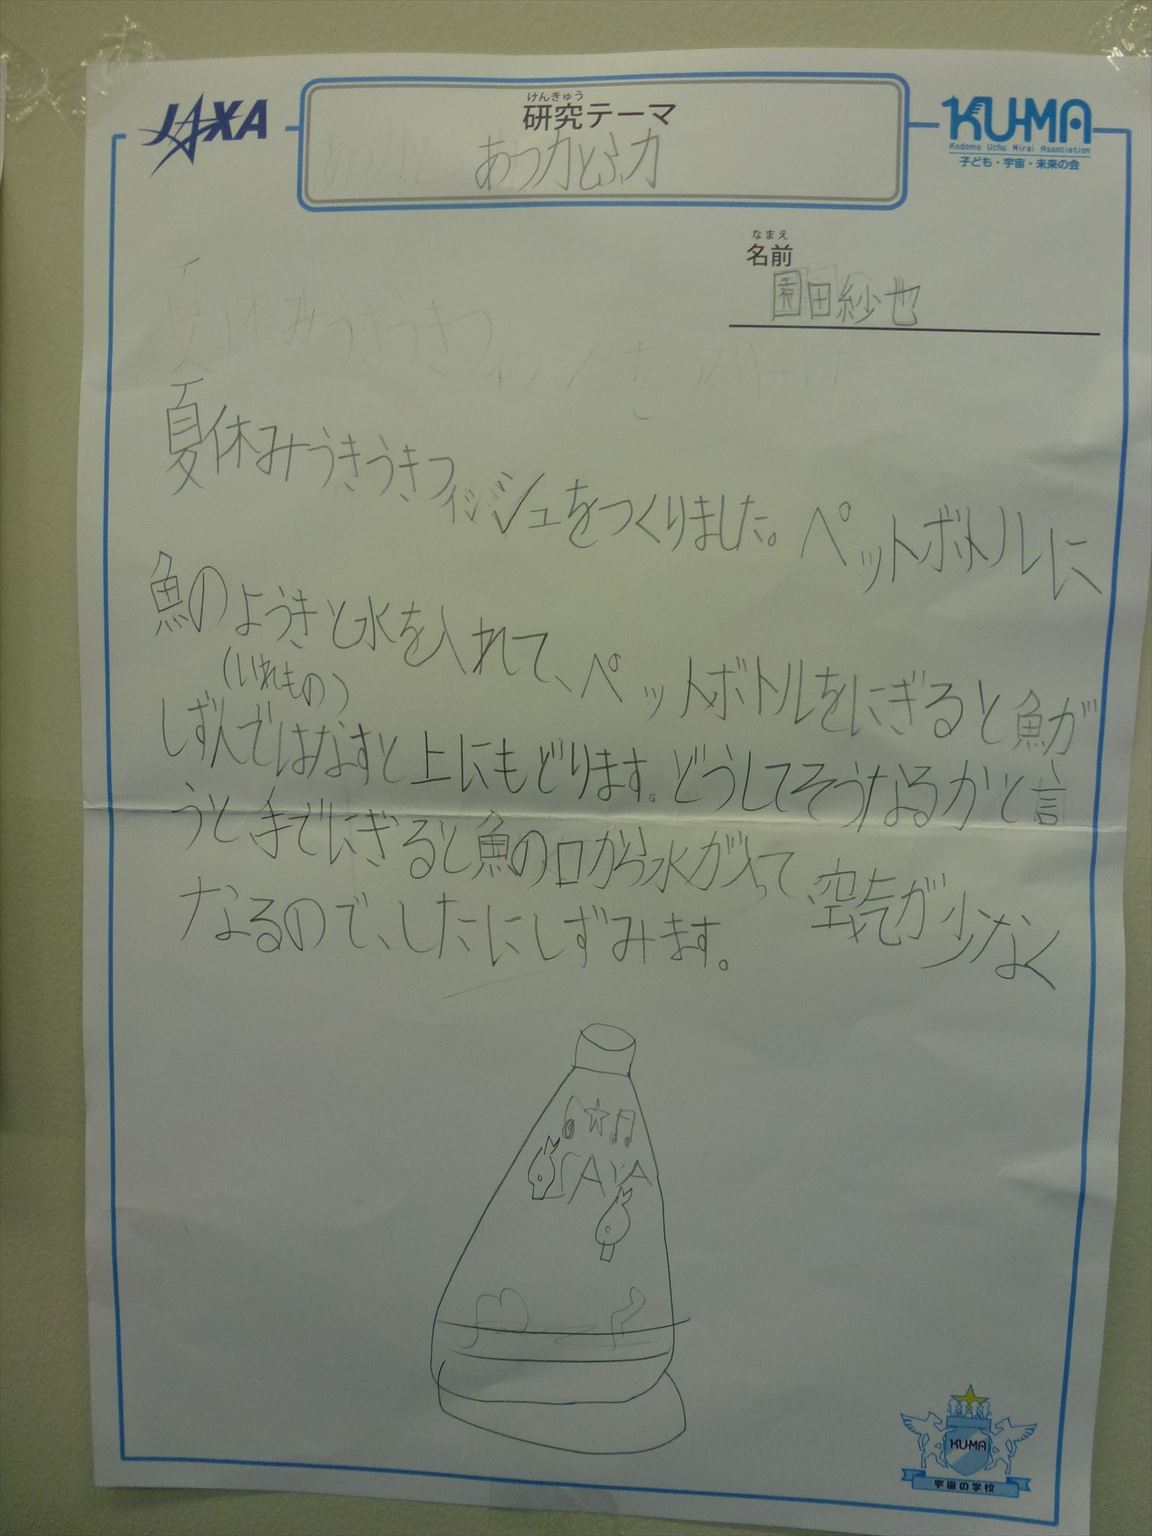 JAXA
けんきゅう
研究テーマ
あつ力とふ力
KU-MA
Kodomo Uchu Mirai Association
子ども・宇宙・未来の会
なまえ
名前
園田紗也
夏休みうきうきフィッシュをつくりました
夏休みうきうきフィッシュをつくりました。ペットボトルに
魚のようきと水を入れて、ペットボトルをにぎると魚が
(いれもの)
しずんではなすと上にもどります。どうしてそうなるかと言
うと手でにぎると魚の口から水が入って、空気が少なく
なるので、したにしずみます。
SAYA
KU-MA
宇宙の学校